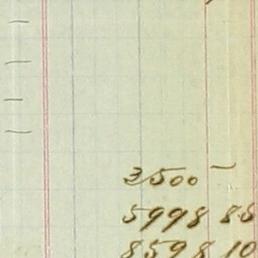 3500 —
5998 85
8598 10